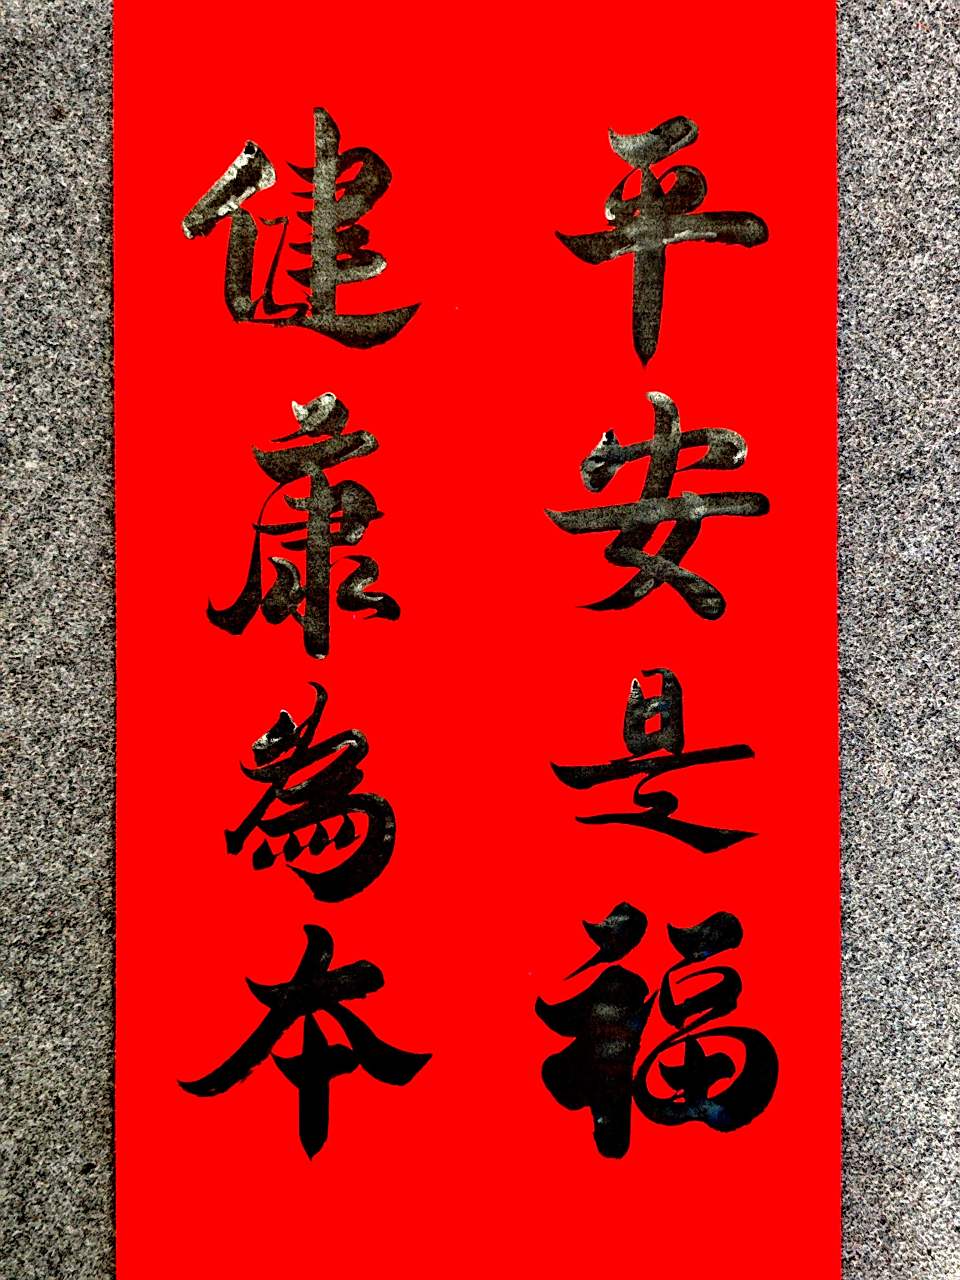 平安是福
健康為本